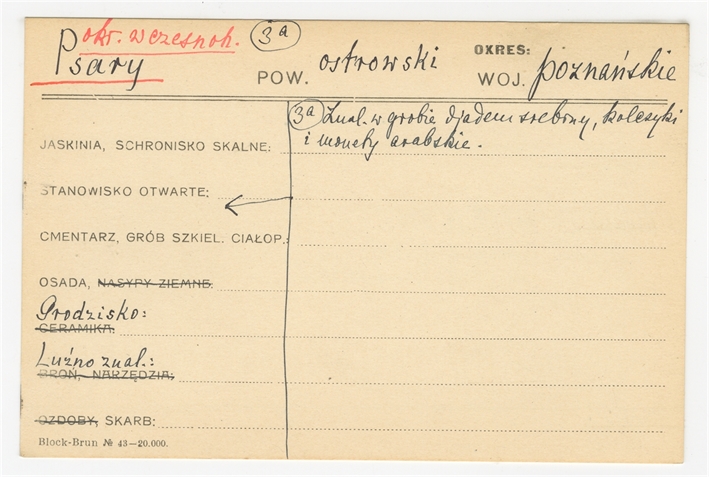 okr. wczesnoh. 3a
Psary POW. ostrowski OKRES: WOJ. poznańskie
3a Znal. w grobie djadem srebrny, kolczyki
i monety arabskie.
JASKINIA, SCHRONISKO SKALNE:
STANOWISKO OTWARTE:
CMENTARZ, GRÓB SZKIEL. CIAŁOP.:
OSADA, NASYPY ZIEMNE:
Grodzisko:
CERAMIKA:
Luźno znal.:
BROŃ, NARZĘDZIA:
OZDOBY, SKARB:
Block-Brun № 43—20.000.